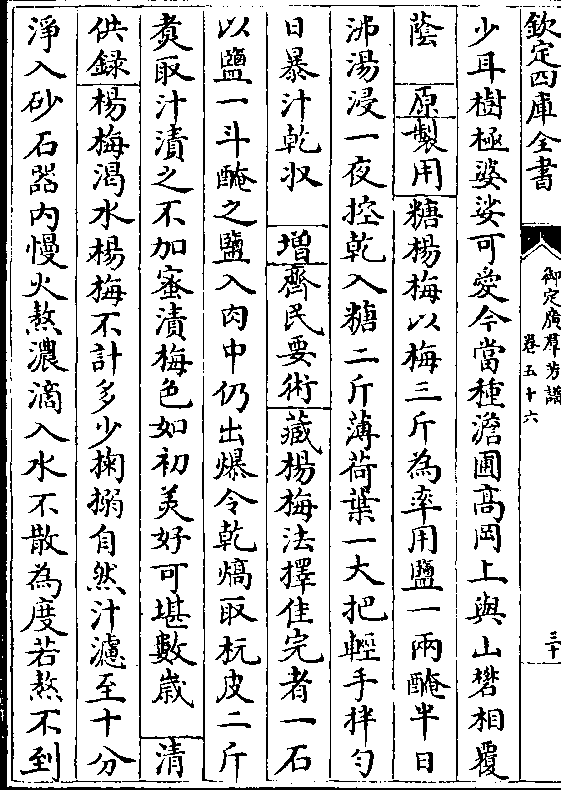 欽定四庫全書
御定廣羣芳譜
卷五十六
三十
少耳樹極婆娑可愛今當種澹圃髙岡上與山礬相覆
蔭 原製用糖楊梅以梅三斤為率用鹽一兩醃半日
沸湯浸一夜控乾入糖二斤薄荷葉一大把輕手拌勻
日暴汁乾収 増齊民要術藏楊梅法擇佳完者一石
以鹽一斗醃之鹽入肉中仍出爆令乾熇取杬皮二斤
煑取汁漬之不加蜜漬梅色如初美好可堪數歳 清
供録楊梅渴水楊梅不計多少掬搦自然汁濾至十分
淨入砂石器内慢火熬濃滴入水不散為度若熬不到